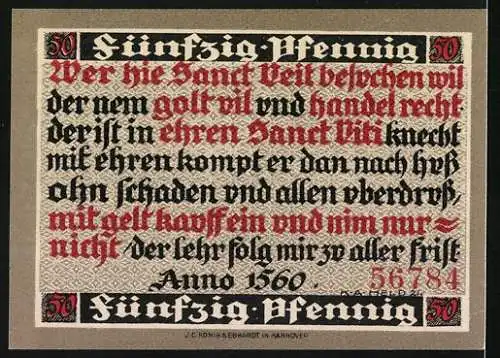 50 Fünfzig·Pfennig 50
Wer hie Sanct Veit besuchen wil
der nem golt vil vnd handel recht·
der ist in ehren Sanct Viti knecht
mit ehren kompt er dan nach huß
ohn schaden vnd allen vberdruß,
mit gelt kauff ein vnd nim nur=
nicht, der lehr folg mir zv aller frist·
Anno 1560. 56784
K.A. HELD 21
50 Fünfzig·Pfennig 50
J.C. KÖNIG & EBHARDT IN HANNOVER